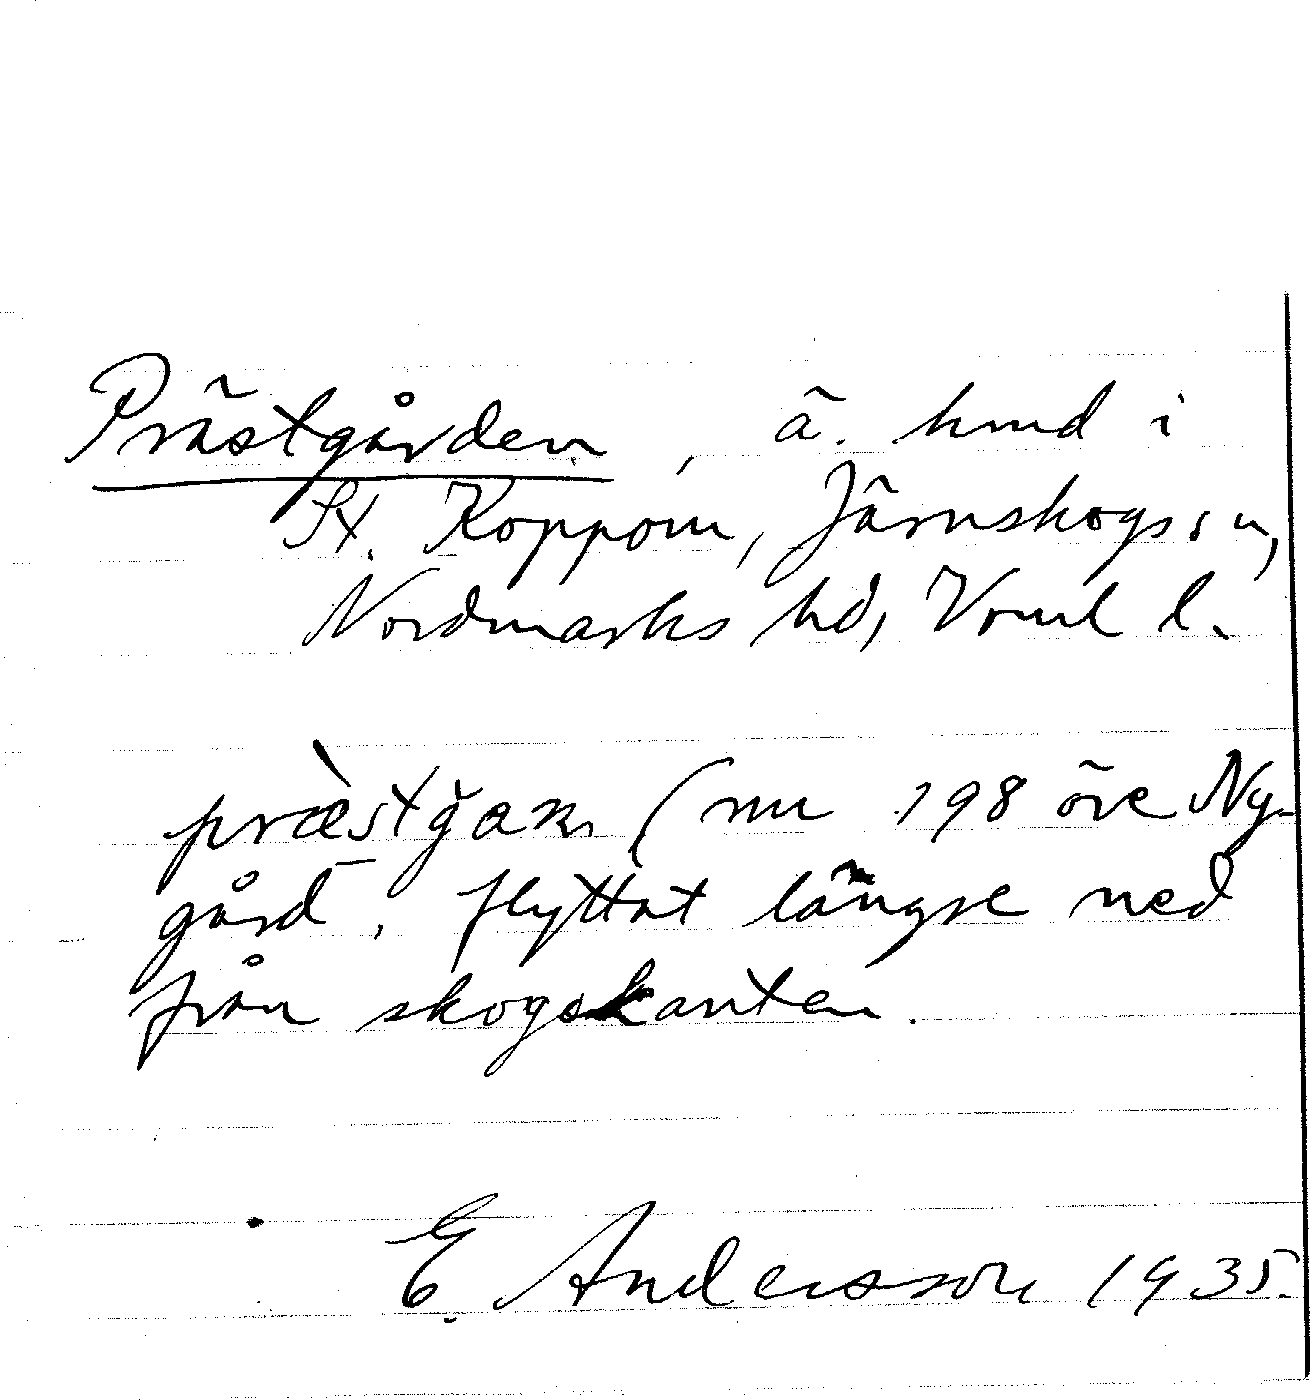 Prästgården, ä. hmd i
St. Koppom, Järnskogs sn,
Nordmarks hd, Vrml l.
præ̀stğaɳ (nu 198 öve Ny-
gård, flyttat längre ned
från skogskanten.
E. Andersson 1935.